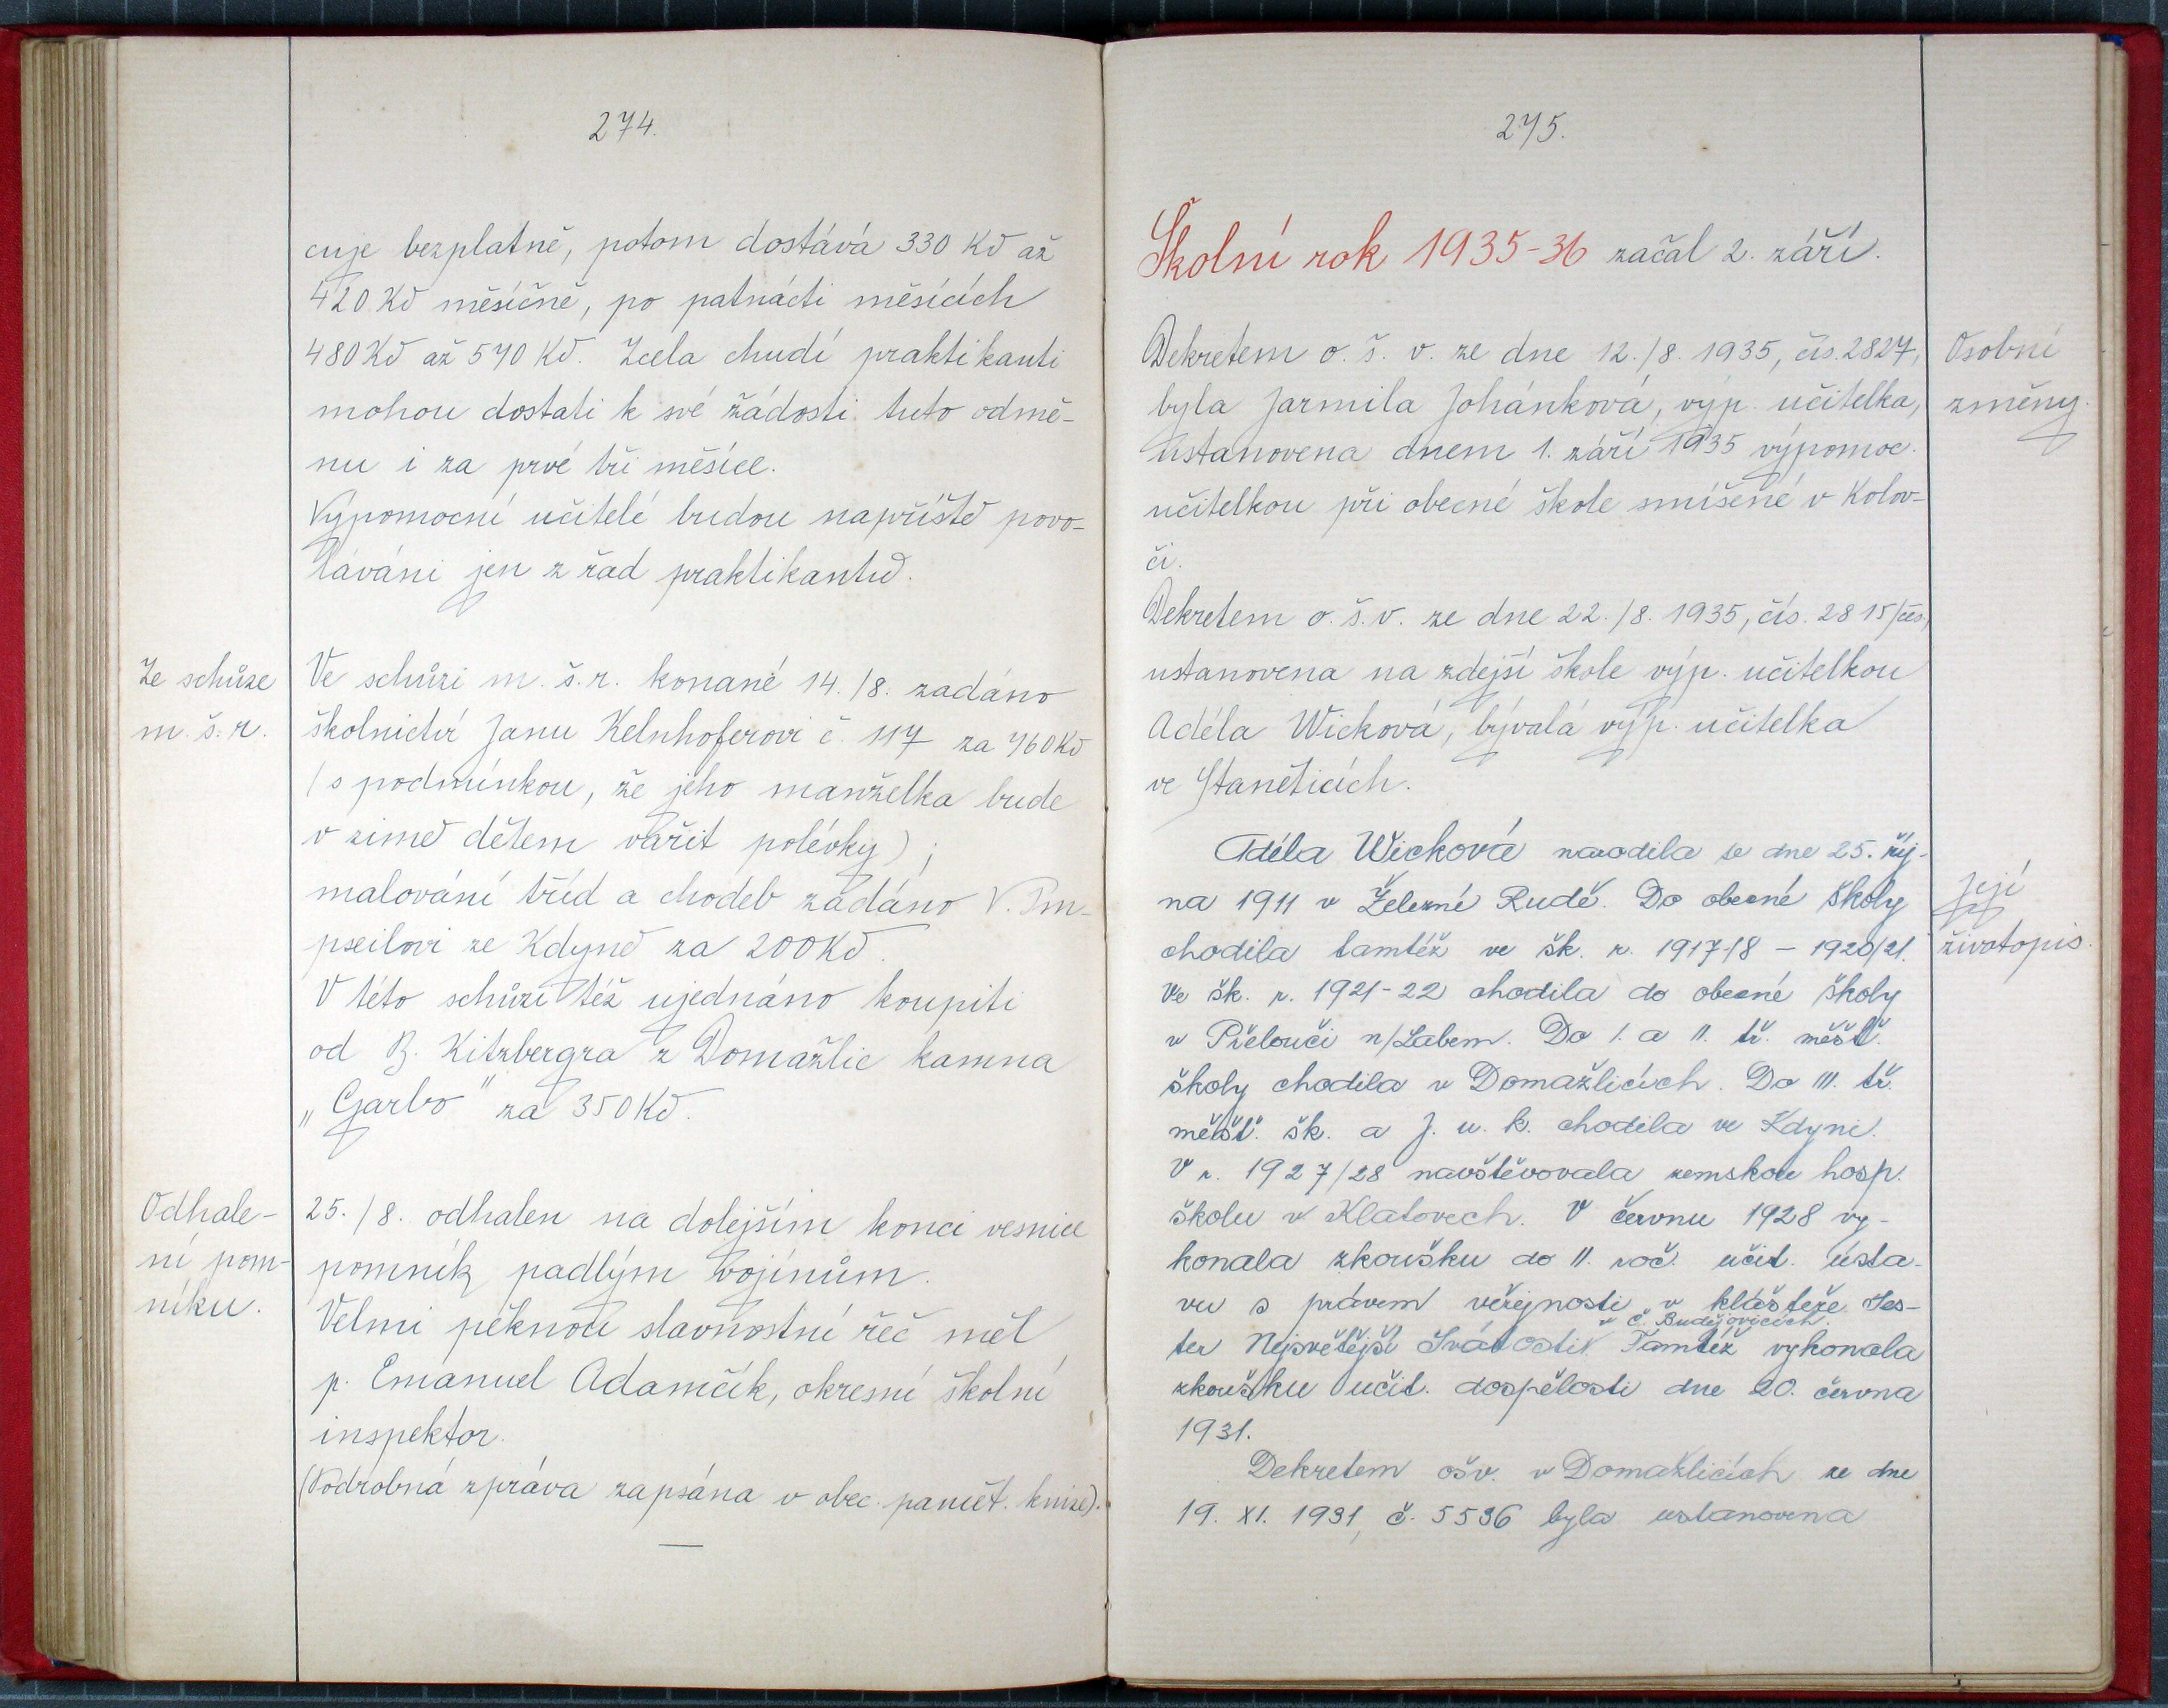 274.
cuje bezplatně, potom dostává 330 Kč až
420 Kč měsíčně, po patnácti měsících
480 Kč až 570 Kč. Zcela chudí praktikanti
mohou dostati k své žádosti tuto odmě-
nu i za prvé tři měsíce.
Výpomocní učitelé budou napříště povo-
láváni jen z řad praktikantů.
Ze schůze
m. š. r.
Ve schůzi m. š. r. konané 14./8. zadáno
školnictví Janu Kelnhoferovi č. 117 za 760 Kč
(s podmínkou, že jeho manželka bude
v zimě dětem vařit polévky);
malování tříd a chodeb zadáno V. Pm-
pseilovi ze Kdyně za 200 Kč.
V této schůzi též ujednáno koupiti
od B. Kitzbergra z Domažlic kamna
„Garbo" za 350 Kč.
Odhale-
ní pom-
níku.
25./8. odhalen na dolejším konci vesnice
pomník padlým vojínům.
Velmi pěknou slavnostní řeč měl
p. Emanuel Adamčík, okresní školní
inspektor.
(Podrobná zpráva zapsána v obec. pamět. knize).
275.
Školní rok 1935-36 začal 2. září.
Osobní
změny.
Dekretem o. š. v. ze dne 12./8. 1935, čís. 2827,
byla Jarmila Johánková, výp. učitelka,
ustanovena dnem 1. září 1935 výpomoc.
učitelkou při obecné škole smíšené v Kolov-
či.
Dekretem o. š. v. ze dne 22./8. 1935, čís. 2815/čes,
ustanovena na zdejší škole výp. učitelkou
Adéla Wicková, bývalá výp. učitelka
ve Staněticích.
Její
životopis.
Adéla Wicková narodila se dne 25. říj-
na 1911 v Železné Rudě. Do obecné školy
chodila tamtéž ve šk. r. 1917-18 – 1920/21.
Ve šk. r. 1921-22 chodila do obecné školy
v Přelouči n/Labem. Do I. a II. tř. měšť.
školy chodila v Domažlicích. Do III. tř.
měšť. šk. a J. u. k. chodila ve Kdyni.
V r. 1927/28 navštěvovala zemskou hosp.
školu v Klatovech. V červnu 1928 vy-
konala zkoušku do II. roč. učit. ústa-
vu s právem veřejnosti v klášteře Ses-
v Č. Budějovicích.
ter Nejsvětější Svátosti Tamtéž vykonala
zkoušku učit. dospělosti dne 20. června
1931.
Dekretem ošv. v Domažlicích ze dne
19. XI. 1931, č. 5536 byla ustanovena